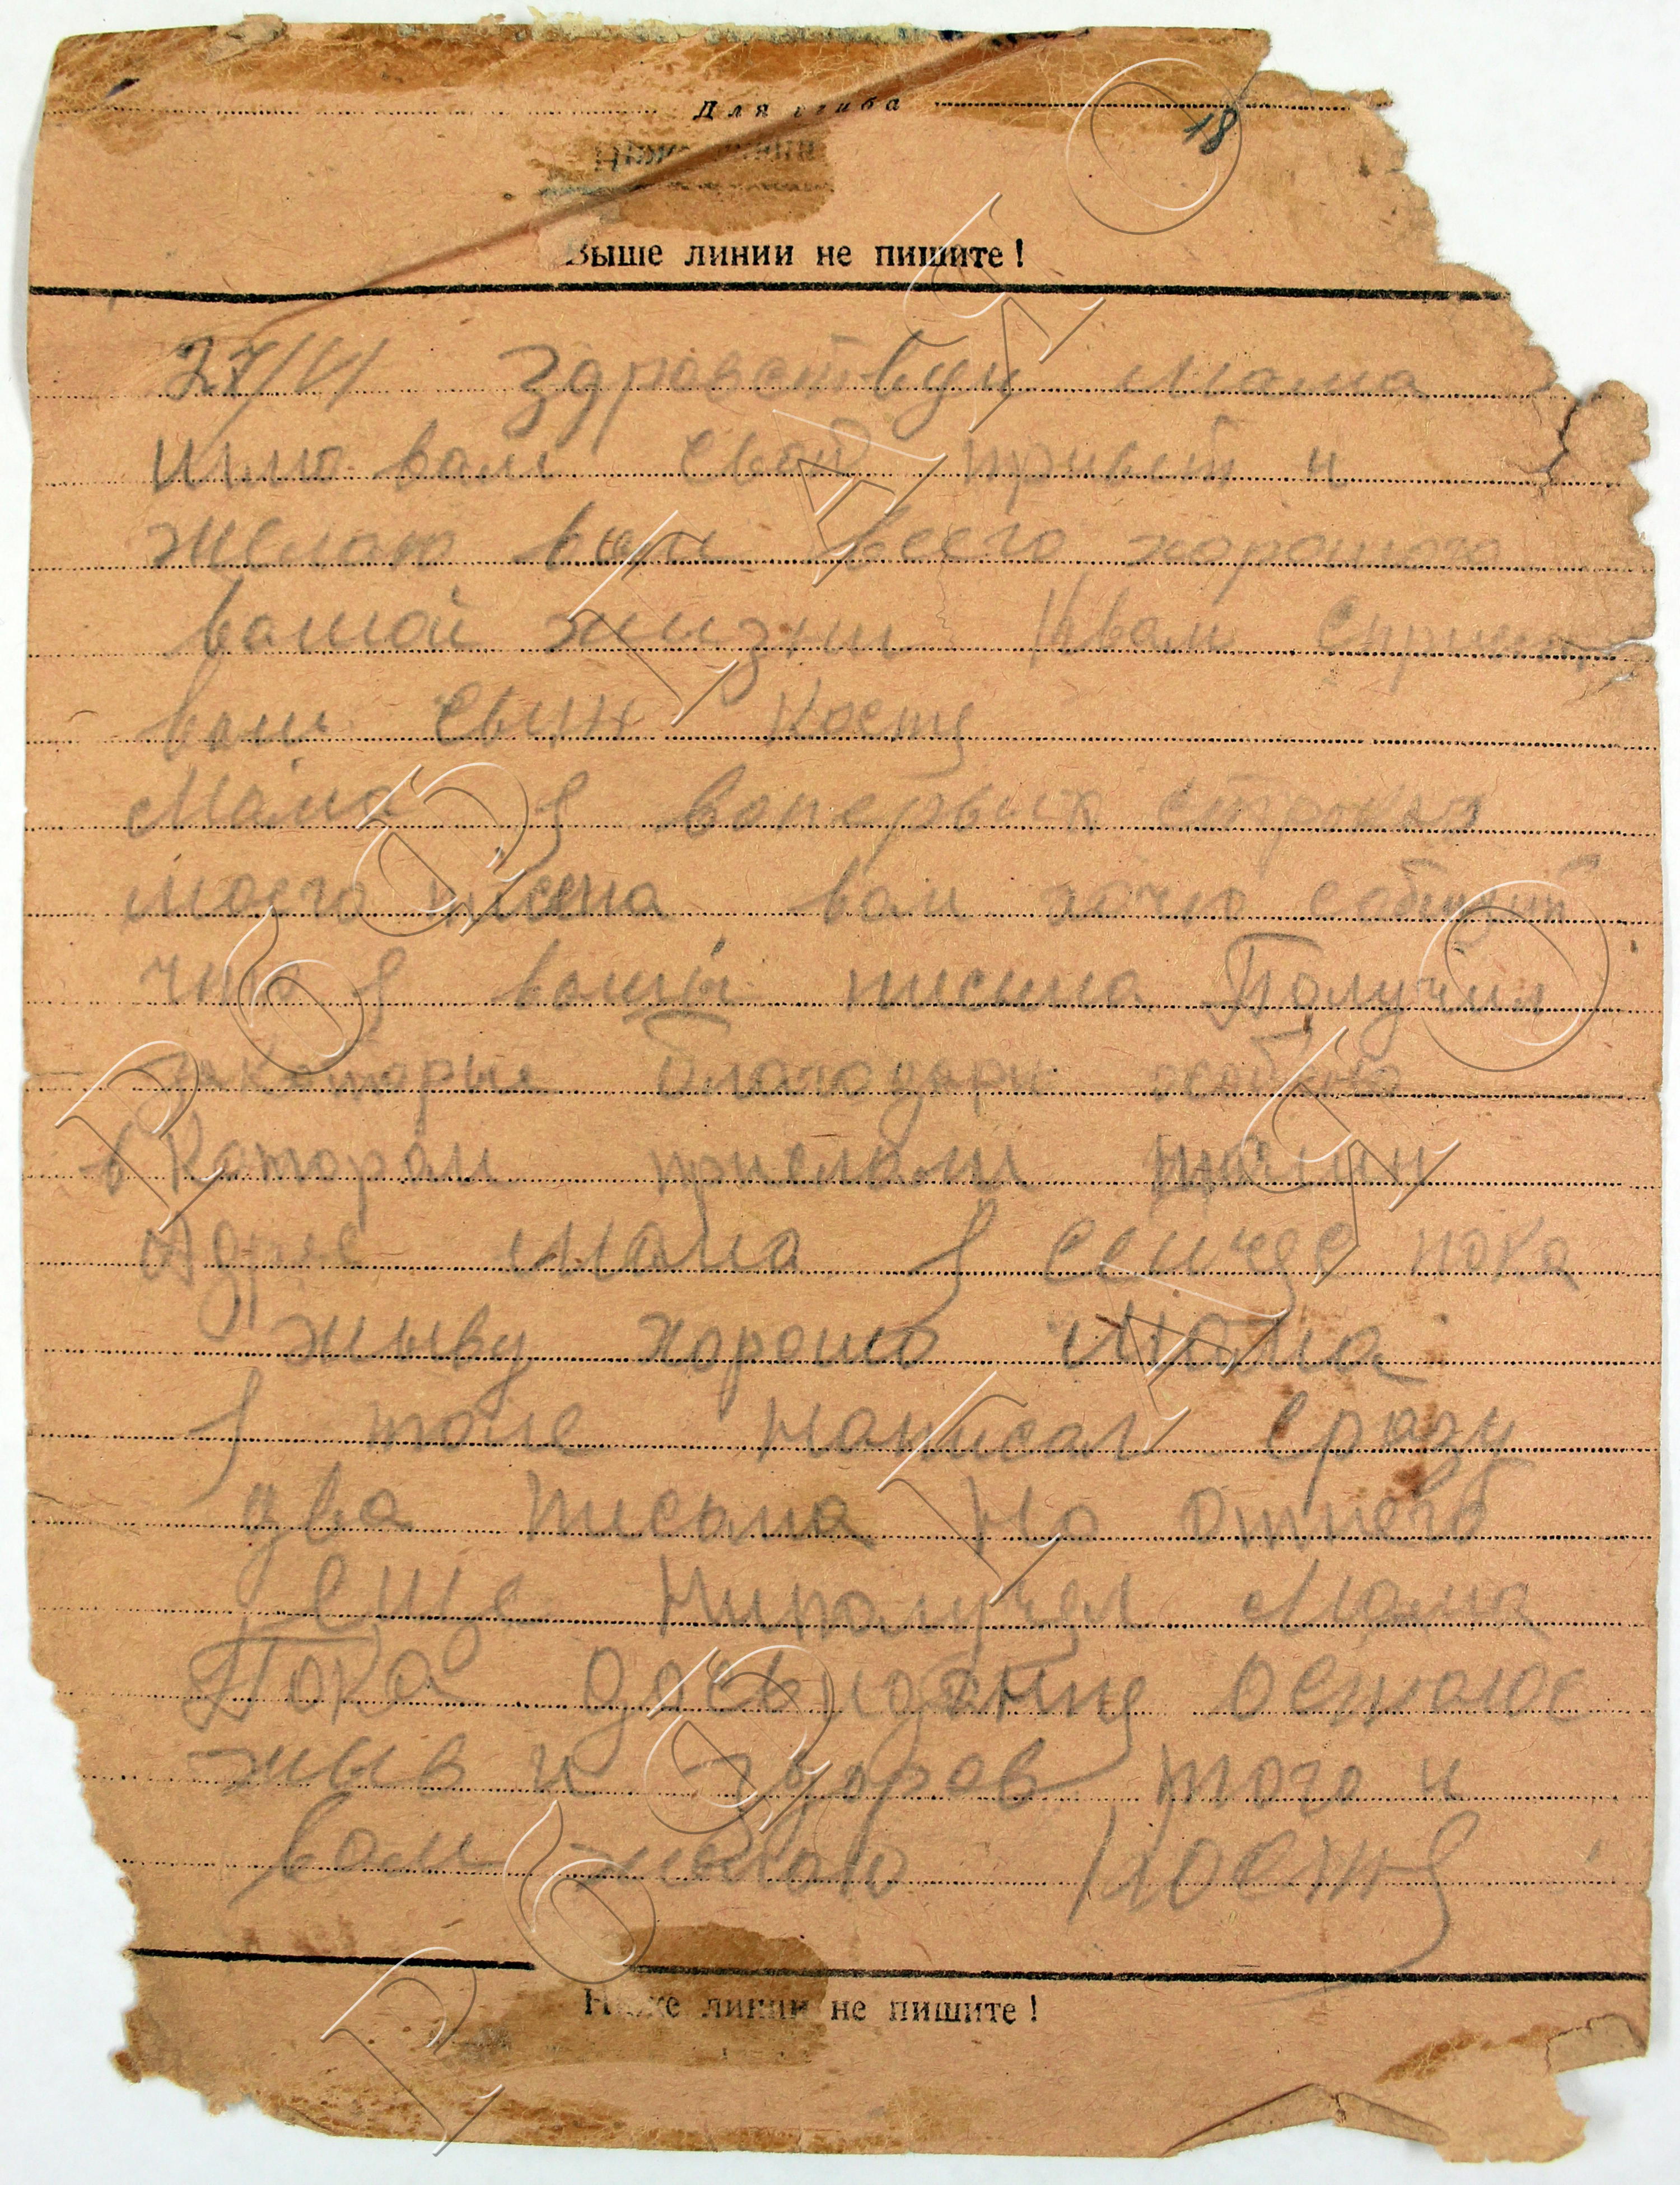 Для сгиба
18
Выше линии не пишите!
27/VI Здравствуй мама
шлю вам свой привет и
желаю вам всего хорошого
вашой жизни К вам спривет
ваш сын Костя
Мама я вопервых строках
моего писма вам хочю собщит
что я вашы писма Получил
закоторые благодарю
в Каторам прислали
Адрес мама я сейчяс пока
жыву хорошо мама
я тоже написал сразу
два писма но
еще ниполучел мама
Пока досвидания остаюс
жыв и здоров того и
вам желаю Костя
Ниже линии не пишите!
РОДОСЛАВНАЯ